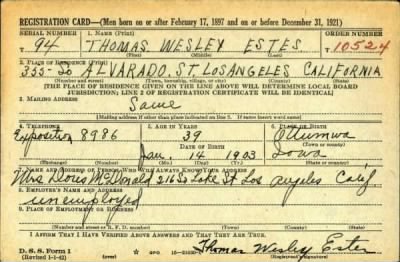 REGISTRATION CARD—(Men born on or after February 17, 1897 and on or before December 31, 1921)
SERIAL NUMBER 1. NAME (Print) ORDER NUMBER
T 94 THOMAS WESLEY ESTES 10524
(First) (Middle) (Last)
2. PLACE OF RESIDENCE (Print)
335-So ALVARADO, ST LOS ANGELES, CALIFORNIA
(Number and street) (Town, township, village, or city) (County) (State)
[THE PLACE OF RESIDENCE GIVEN ON THE LINE ABOVE WILL DETERMINE LOCAL BOARD
JURISDICTION; LINE 2 OF REGISTRATION CERTIFICATE WILL BE IDENTICAL]
3. MAILING ADDRESS
Same
[Mailing address if other than place indicated on line 2. If same insert word same]
4. TELEPHONE 5. AGE IN YEARS 6. PLACE OF BIRTH
Exposition 8986 39 Ottumwa
DATE OF BIRTH (Town or county)
Jan. 14 1903 Iowa
(Exchange) (Number) (Mo.) (Day) (Yr.) (State or country)
7. NAME AND ADDRESS OF PERSON WHO WILL ALWAYS KNOW YOUR ADDRESS
Mrs McDonald 216 So Lake St Los Angeles Calif.
8. EMPLOYER'S NAME AND ADDRESS
unemployed
9. PLACE OF EMPLOYMENT OR BUSINESS
(Number and street or R. F. D. number) (Town) (County) (State)
I AFFIRM THAT I HAVE VERIFIED ABOVE ANSWERS AND THAT THEY ARE TRUE.
D. S. S. Form 1 Thomas Wesley Estes
(Revised 1-1-42) GPO (Registrant's signature)